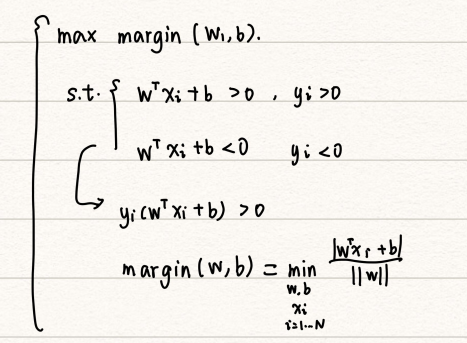 max margin (w₁,b).
s.t. { wᵀxᵢ+b >0 , yᵢ>0
wᵀxᵢ+b <0 yᵢ<0
yᵢ(wᵀxᵢ+b) >0
margin(w,b) = min |wᵀxᵢ+b| / ||w||
w,b
xᵢ
i=1...N